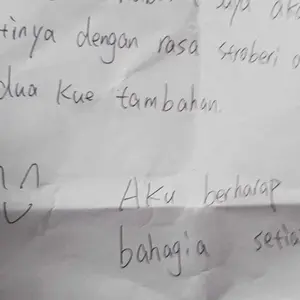 saya
tinya dengan rasa stroberi
dua kue tambahan.
Aku berharap
bahagia setia